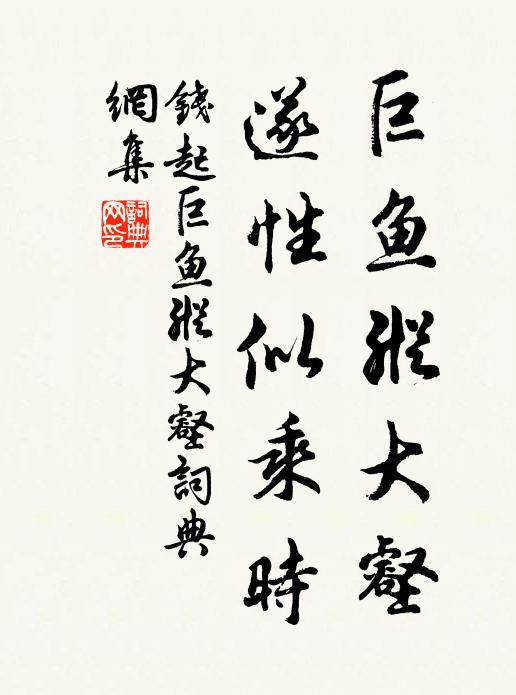 巨鱼縱大壑
遂性似乘時
錢起巨鱼縱大壑詞典
網集
詞典
网印